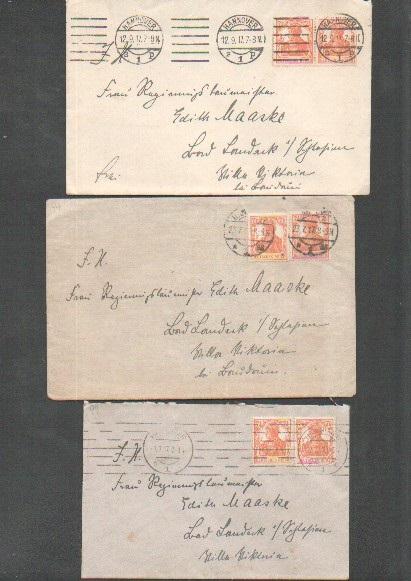 HANNOVER
12.9.17.7-8N.
1
HANNOVER
12.9.17.7-8N.
1
HANNOVER
12.9.17.7-8N.
1
F. H.
Frau Regierungsbaumeister
Edith Maaske
Bad Landeck i/ Schlesien
Villa Viktoria
bei
F. H.
Frau Regierungsbaumeister Edith Maaske
Bad Landeck i/ Schlesien
Villa Viktoria
bei
F. H.
Frau Regierungsbaumeister
Edith Maaske
Bad Landeck i/ Schlesien
Villa Viktoria